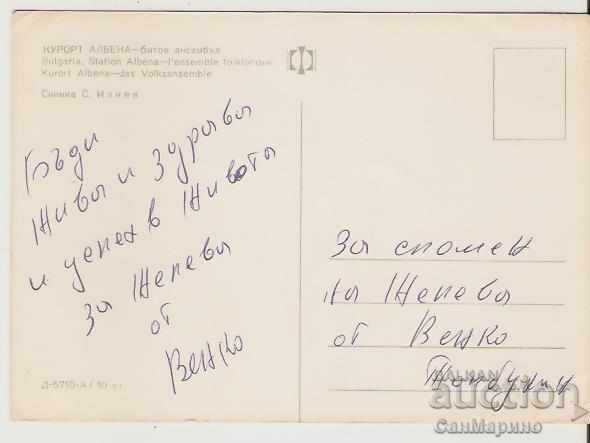 КУРОРТ АЛБЕНА—битов ансамбъл
Bulgaria, Station Albena—l'ensemble folklorique
Kurort Albena—das Volksensemble
Снимка С. Илиев
Бъди
Живы и здравы
и успех в Животы
за Женевы
от
Венко
За спомен
на Женевы
от Венко
BALKAN
auction
СанМарино